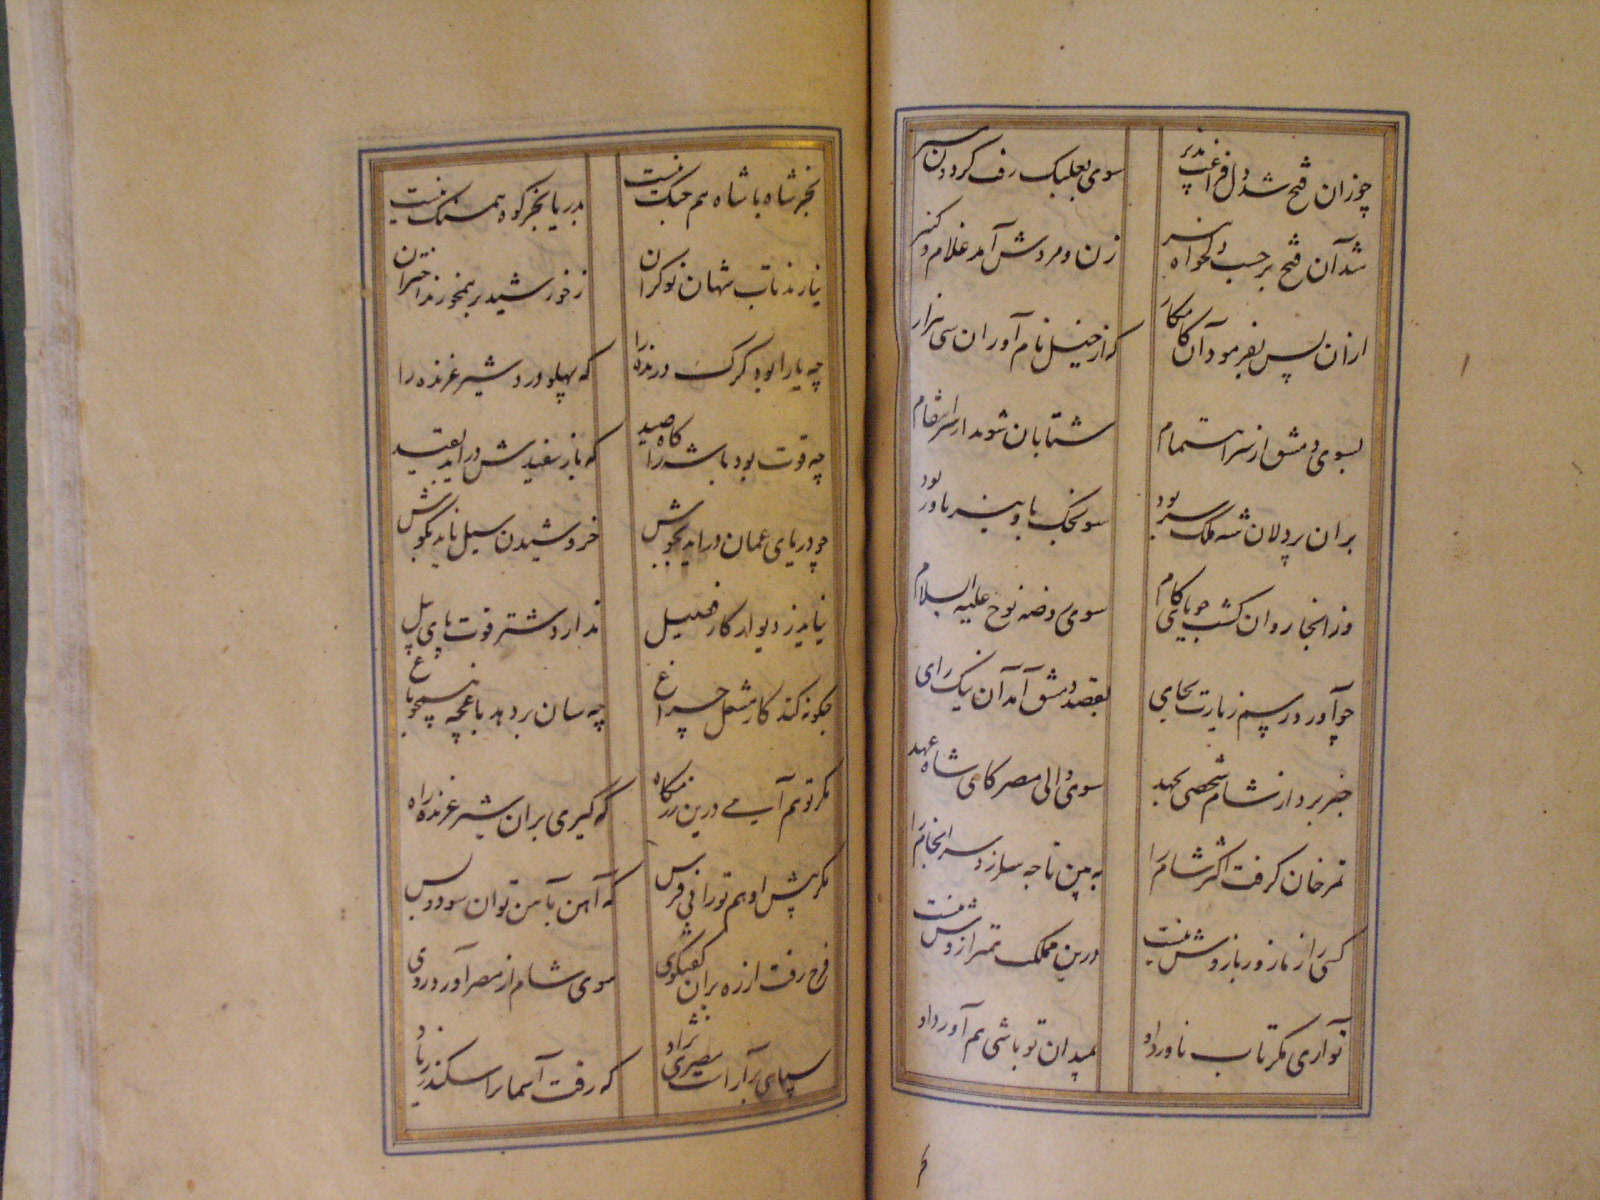 چو زان فتح شد دل فراغت پذیر سوی بعلبک رفت کردون سریر
شد آن فتح بر حسب دلخواه نیز زن و مردش آمد غلام و کنیز
ازان پس بفرمود آن کامکار که از خیل نام آوران سی هزار
بسوی دمشق از سر اهتمام شتابان شوند از سر انتقام
بران پردلان شه ملک
وز انجا روان کشت جویای کام سوی روضه نوح علیه السلام
چو آورد رسم زیارت بجای بقصد دمشق آمد آن نیک رای
خبر برد از شام شخصی بجهد سوی والی مصر کای شاه عهد
تمرخان کرفت اکثر شام را ببین تا چه سازد سرانجام را
کسی را ز ناز ور بازوش نیست درین مملکت همترازوش نیست
تو آری مکر تاب ناورد او بمیدان تو باشی هم آورد او
بجز شاه با شاه هم جنک نیست بدریا بجز کوه همسنک نیست
نیارند تاب شهان نوکران ز خورشید بر نمیخورند اختران
چه یارا بود کرک درنده را که پهلو درد شیر غرنده را
چه قوت بود باشه را کاه صید که باز سفیدش درآید بقید
چو دریای عمان درآید بجوش خروشیدن سیل ناید بکوش
نیاید ز دیوار کار فصیل ندارد شتر قوت پای پیل
چکونه کند کار مشعل چراغ چه سان بر دهد باغچه همچو باغ
مکر تو هم آیی درین رزمکاه که کیری بران شیر غرنده راه
مکر پیش او هم تو رانی فرس که آهن بآهن توان سود و بس
فرج رفت از ره بران کفتکوی سوی شام از مصر آورد روی
سپاهی برآراست مصری نژاد که رفت آسمان را سکندر ز یاد